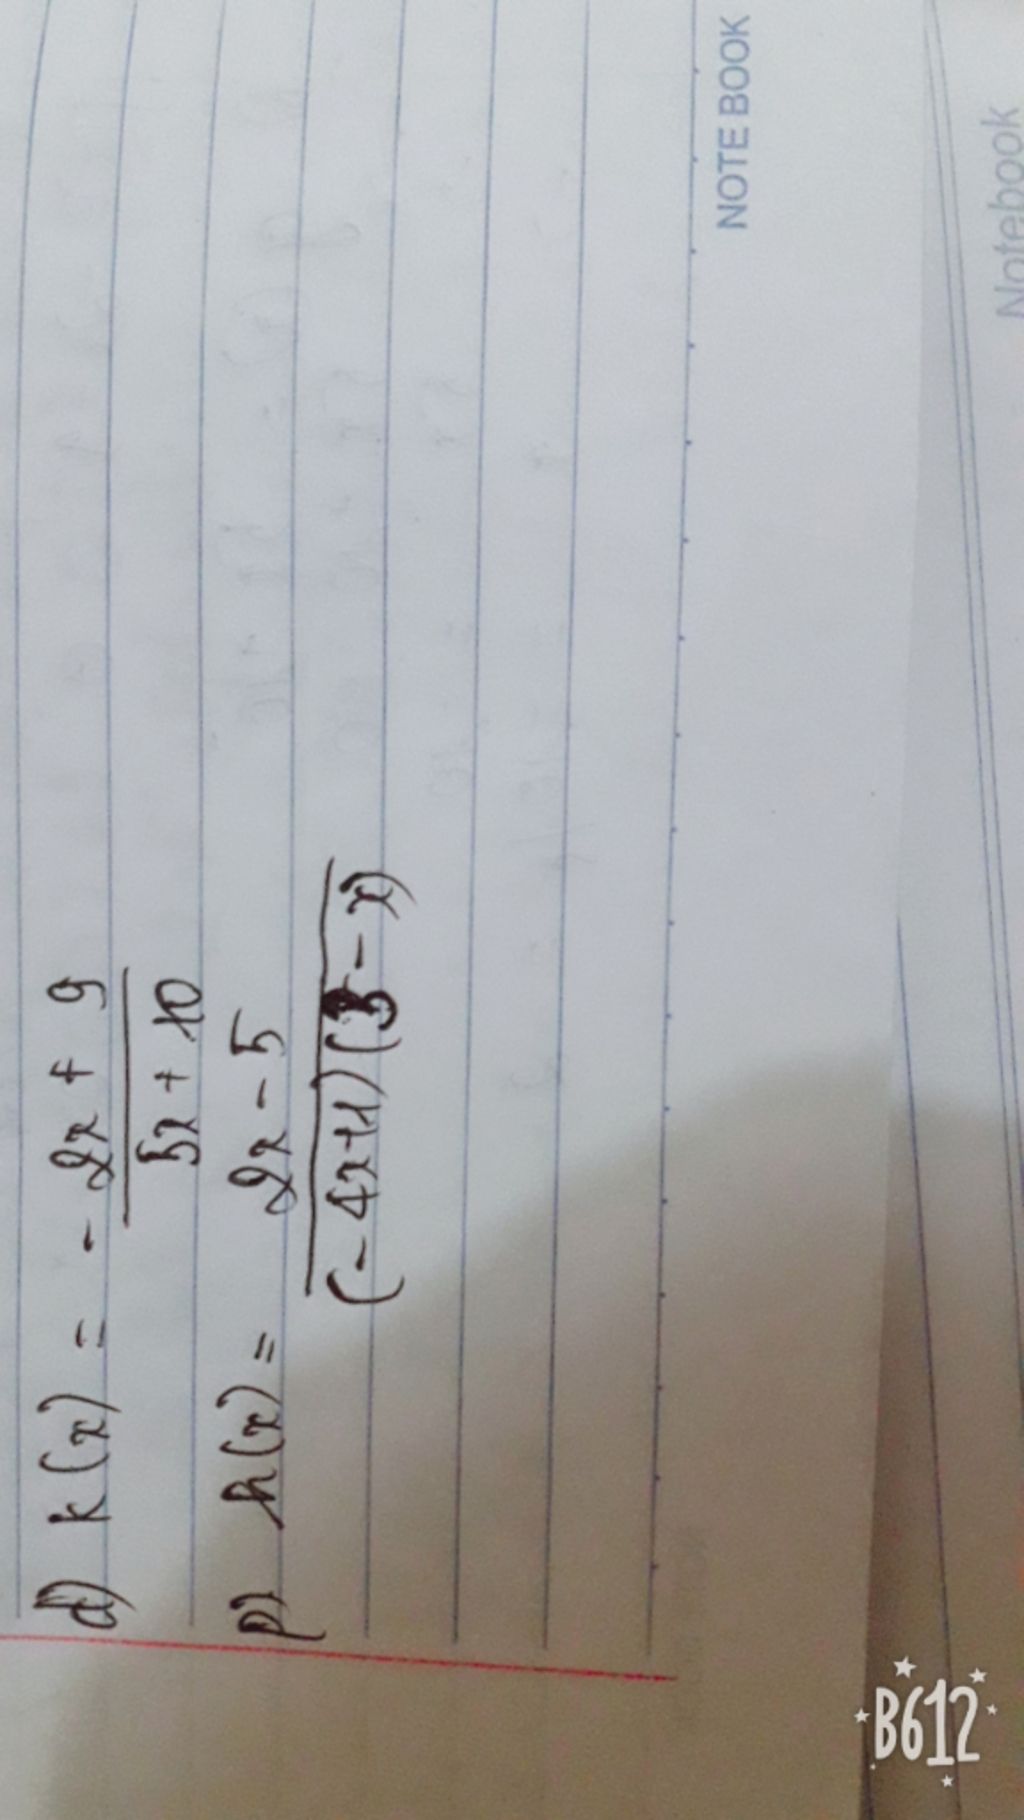 d) k(x) = -2x + 9
5x + 10
p) h(x) = 2x - 5
(-4x+1)(3-x)
NOTE BOOK
Notebook
B612